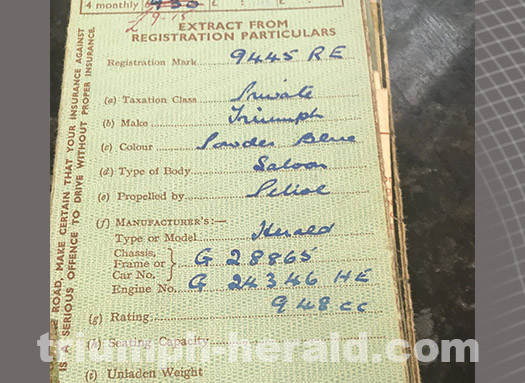 4 monthly
£9-15
EXTRACT FROM
REGISTRATION PARTICULARS
Registration Mark 9445 RE
(a) Taxation Class Private
(b) Make Triumph
(c) Colour Powder Blue
(d) Type of Body Saloon
(e) Propelled by Petrol
(f) MANUFACTURER'S:—
Type or Model Herald
Chassis,
Frame or
Car No. G 28865
Engine No. G 24346 HE
948 cc
(g) Rating
(h) Seating Capacity
(i) Unladen Weight
ROAD, MAKE CERTAIN THAT YOUR INSURANCE AGAINST
IS A SERIOUS OFFENCE TO DRIVE WITHOUT PROPER INSURANCE.
triumph-herald.com